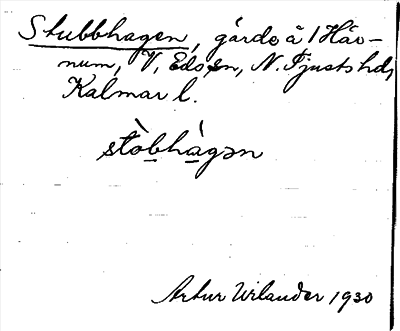 Stubbhagen, gärde å 1 Här-
num, V. Eds sn, N. Tjusts hd,
Kalmar l.
stòbhàgən
Artur Urlander 1930